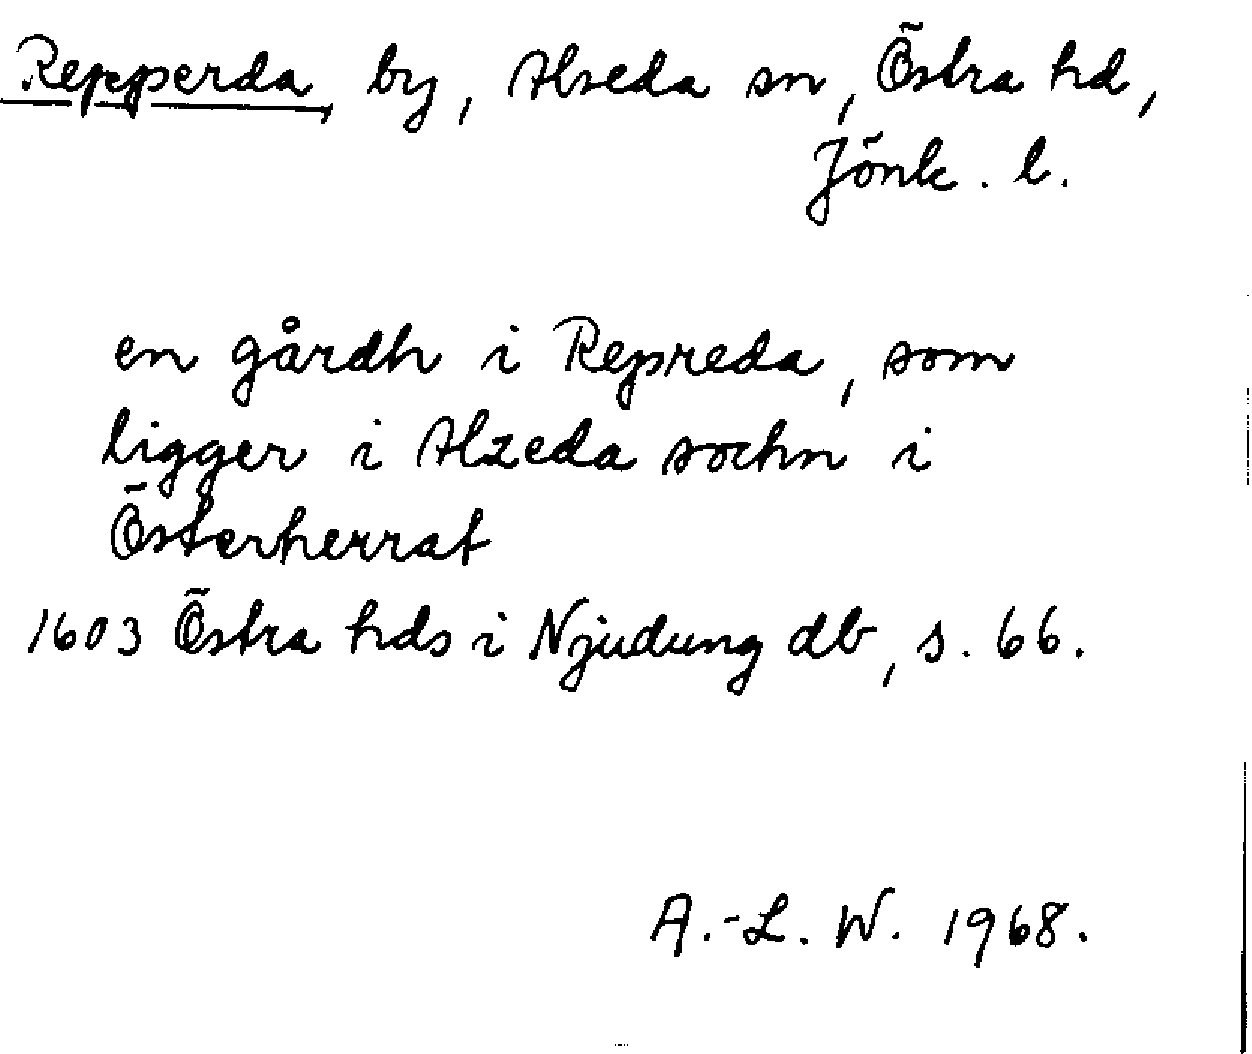 Repperda, by, Alseda sn, Östra hd,
Jönk. l.
en gårdh i Repreda, som
ligger i Alzeda sochn i
Österherrat
1603 Östra hds i Njudung db, s. 66.
A.-L. W. 1968.